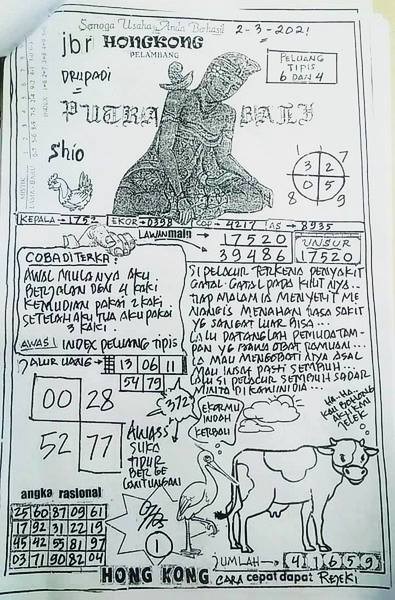 Semoga Usaha Anda Berhasil
2-3-2021
jbr HONGKONG
PELAMBANG
DRUPADI
PELUANG
TIPIS
6 DAN 4
PUTRA BALI
Shio
1 7
3 2
0 5
8 9
KEPALA → 1752 EKOR → 0398 4217 AS → 8935
LAWAN main
17520
39486
UNSUR
17520
COBA DITERKA:
AWAL MULANYA AKU
BERJALAN DENGAN 4 KAKI
KEMUDIAN PAKAI 2 KAKI
SETELAH AKU TUA AKU PAKAI
3 KAKI.
AWAS! INDEX PELUANG TIPIS
SI PELACUR TERKENA PENYAKIT
GATAL-GATAL PADA KULITNYA..
TIAP MALAM IA MENJERIT ME
NANGIS MENAHAN RASA SAKIT
YG SANGAT LUAR BISA...
LALU DATANGLAH PEMUDA TAM-
PAN YG BAWA OBAT RAMUAN...
IA MAU MENGOBATINYA ASAL
MAU INSAF PASTI SEMBUH...
LALU SI PELACUR SEMBUH SADAR
MINTA DI KAWINI DIA...
JALUR UANG → 13 06 11
54 79
00 28
52 77
372
AWASS
SUKA
TIDUR
BERGE
LANTUNGAN
EKORMU
INDAH
KERBAU
HA-HA
KAU BOHONG
AKU KAN
JELEK
angka rasional
25 60 87 09 61
17 92 31 22 19
45 42 55 81 97
03 71 90 82 04
1
JUMLAH → 4 1 6 5 9
HONG KONG CARA cepat dapat REJEKI